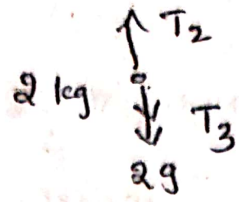 T2
2 kg
T3
2g